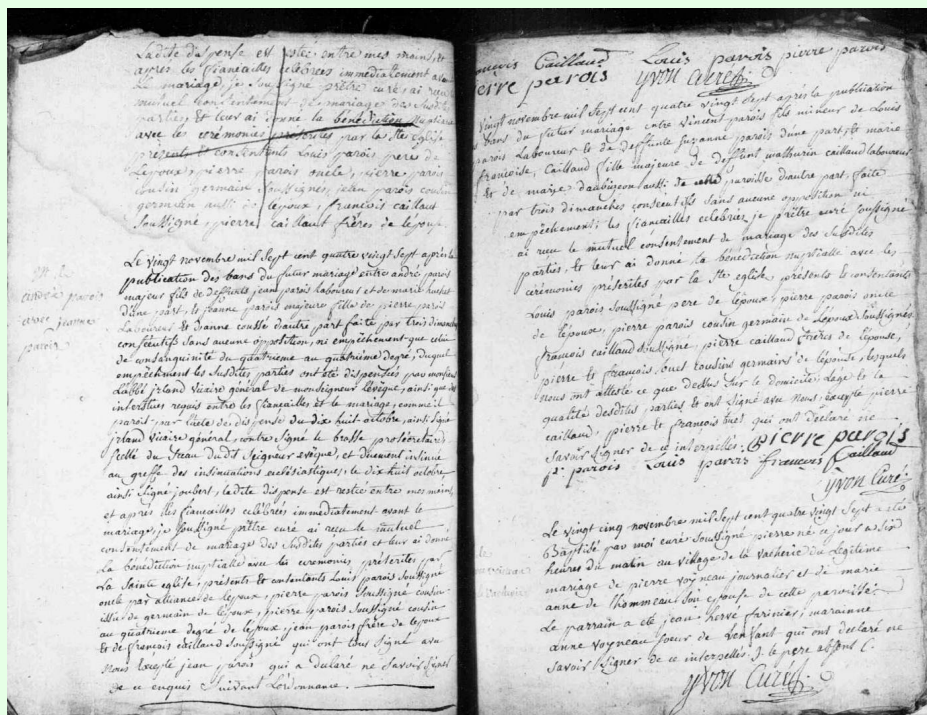 Ladite dispense est restée entre mes mains, et
après les fiancailles célébrées immediatement avant
Le mariage, je soussigné prêtre curé ai recu
mutuel consentement de mariage des susdites
parties et leur ai donné la bénédiction nuptiale
avec les cérémonies prescrites par la Ste Eglise
présents et consentants Louis parois pere de
Lepoux, pierre parois oncle, pierre parois
cousin germain soussignés, jean parois cousin
germain aussi de lepoux, francois caillaut
soussigné, pierre caillaut frères de lépouse
M. de
andré parois
avec jeanne
parois
Le vingt novembre mil sept cent quatre vingt sept après la
publication des bans du futur mariage entre andré parois
majeur fils de deffunts jean parois laboureur et de marie
d'une part, et jeanne parois majeure fille de pierre parois
Laboureur et d'anne cousse d'autre part faite par trois dimanches
consécutifs sans aucune opposition, ni empêchement que celui
de consanguinité du quatrieme au quatrième degré, duquel
empêchement les susdites parties ont été dispensées par monsieur
L'abbé irland vicaire général de monseigneur lévêque, ainsi que des
interstices requis entre les fiancailles et le mariage, comme il
parois par l'acte de dispense du dix huit octobre, ainsi signé
irland vicaire général, contre signé le brasse prosecrétaire,
scellé du sceau dudit seigneur evêque, et duement insinué
au greffe des insinuations ecclésiastiques, le dix huit octobre
ainsi signé joubert, ladite dispense est restée entre mes mains,
et après les fiancailles célébrées immediatement avant le
mariage, je soussigné prêtre curé ai recu le mutuel
consentement de mariage des susdites parties et leur ai donné
la bénédiction nuptiale avec les ceremonies préscrites par
La sainte eglise, présents et consentants Louis parois soussigné
oncle par alliance de lepoux, pierre parois soussigné cousin
issu de germain de lépoux, pierre parois soussigné cousin
au quatrieme degré de lépoux jean parois frère de lepoux
et de francois caillaud soussigné qui ont tous signé avec
Nous excepté jean parois qui a declaré ne savoir signer
de ce enquis suivant Lordonnance.
francois Caillaud Louis parois pierre parois
pierre parois yvon curé
vingt novembre mil sept cent quatre vingt sept après la publication
bans du futur mariage entre vincent parois fils mineur de Louis
parois Laboureur et de deffunte suzanne parois dune part, et marie
francoise, Caillaud fille majeure de deffunt mathurin caillaud laboureur
et de marie daubigeon aussi de cette paroisse d'autre part, faite
par trois dimanches consécutifs sans aucune opposition ni
empêchement; les fiancailles célébrées, je prêtre curé soussigné
ai recu le mutuel consentement de mariage des susdites
parties, et leur ai donné la bénédiction nuptialle avec les
cérémonies prescrites par la Ste eglise, présents et consentants
Louis parois soussigné pere de lépoux, pierre parois oncle
de lépoux, pierre parois cousin germain de Lepoux soussignés,
françois caillaud soussigné, pierre caillaud frères de lépouse,
pierre et francois buet cousins germains de lépouse, lesquels
nous ont attesté ce que dessus sur le domicile, lage et la
qualité desdites parties et ont signé avec nous, excepté pierre
caillaud, pierre et francois buet qui ont déclaré ne
savoir signer de ce interpellés. pierre parois
p. parois Louis parois francois Caillaud
yvon Curé
Le vingt cinq novembre mil sept cent quatre vingt sept a été
Baptisé par moi curé soussigné pierre né ce jour a six
heures du matin au village de la vacherie du legitime
mariage de pierre voyneau journalier et de marie
anne de lhommeau son epouse de cette paroisse.
Le parrain a été jean hervé farinier, marainne
anne voyneau soeur de lenfant qui ont declaré ne
savoir signer de ce interpellés. le pere absent
yvon Curé